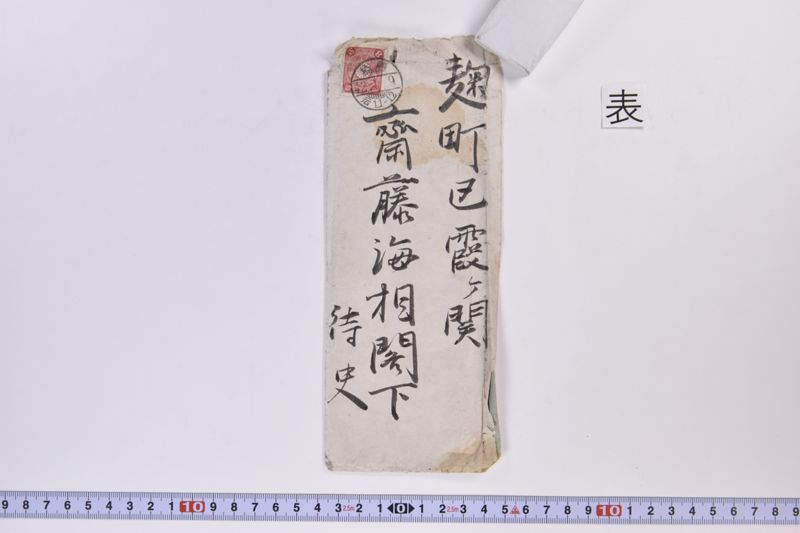 麹町区霞ヶ関
齋藤海相閣下
待史
表
9 8 7 6 5 4 3 2 1 10 9 8 7 6 5 4 3 2.5m 2 1 0 1 2 2.5m 3 4 5 6 7 8 9 10 1 2 3 4 5 6 7 8 9